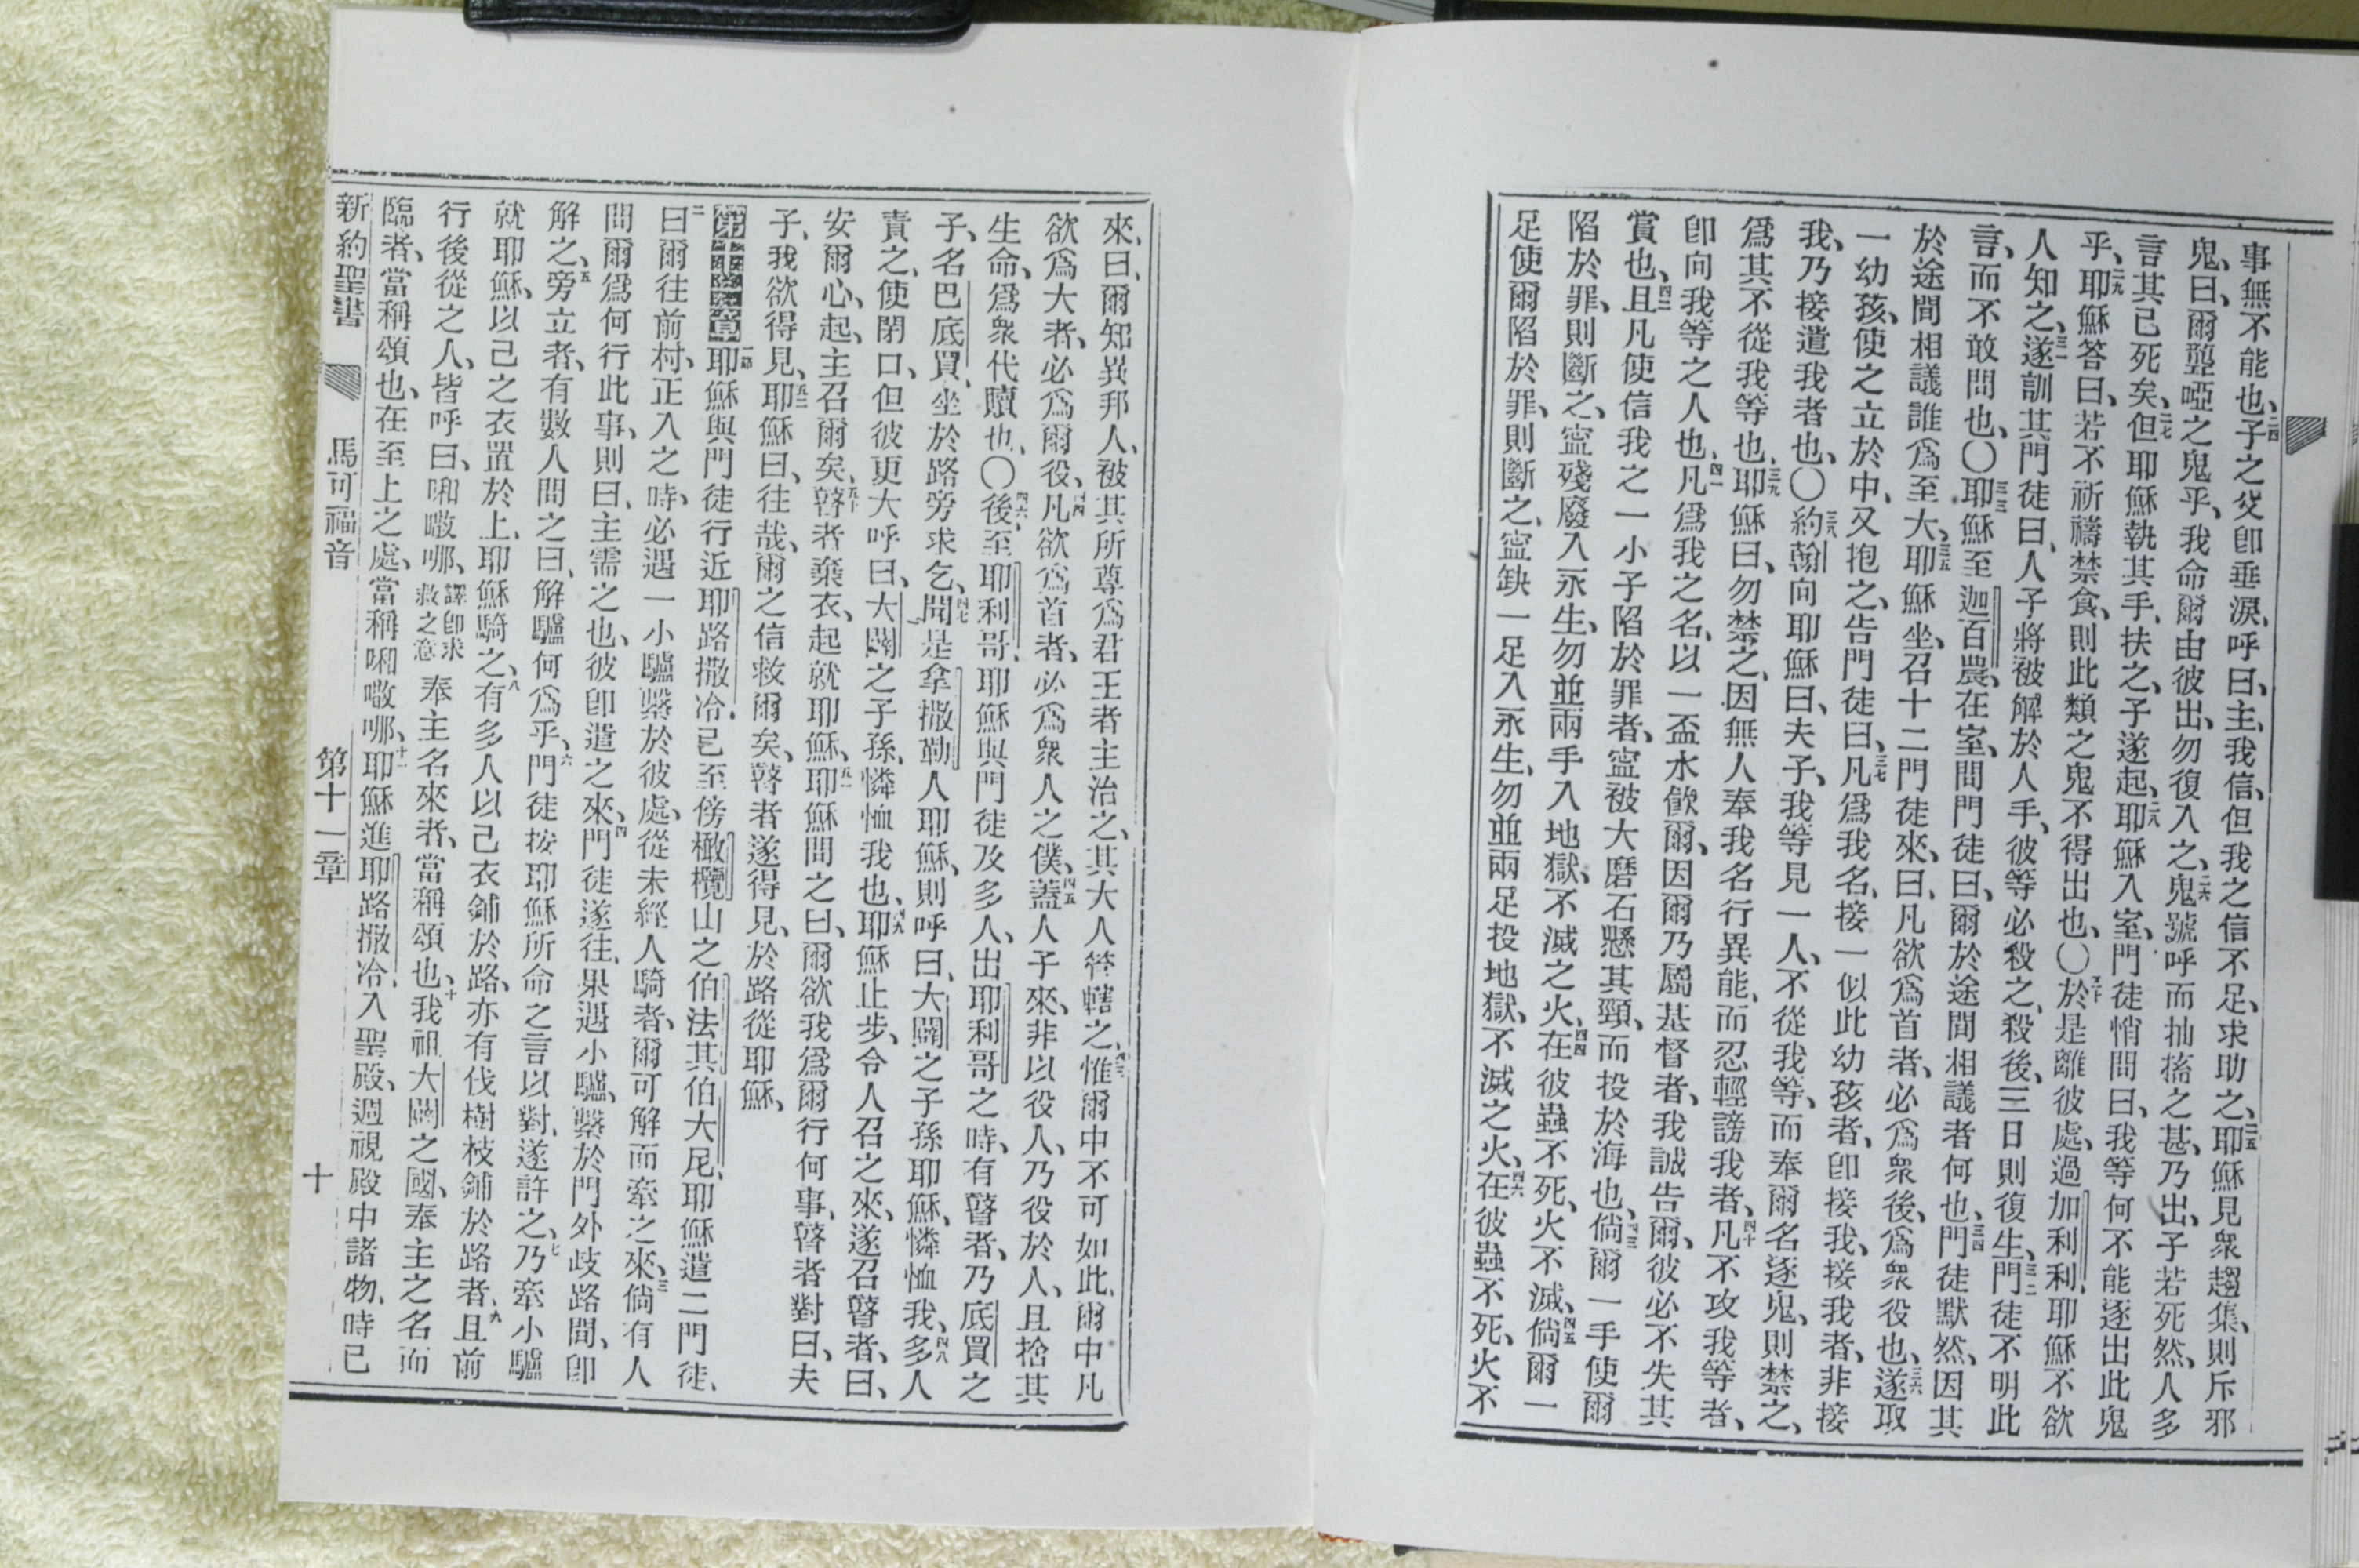 事無不能也、二四子之父卽垂淚、呼曰、主、我信、但我之信不足、求助之、二五耶穌見衆趨集、則斥邪
鬼、曰、爾聾啞之鬼乎、我命爾由彼出、勿復入之、二六鬼號呼而抽搐之甚、乃出、子若死然、人多
言其已死矣、二七但耶穌執其手、扶之、子遂起、二八耶穌入室、門徒悄問曰、我等何不能逐出此鬼
乎、二九耶穌答曰、若不祈禱禁食、則此類之鬼不得出也、〇三十於是離彼處、過加利利、耶穌不欲
人知之、三一遂訓其門徒曰、人子將被解於人手、彼等必殺之、殺後、三日則復生、三二門徒不明此
言、而不敢問也、〇三三耶穌至迦百農、在室、問門徒曰、爾於途間相議者何也、三四門徒默然、因其
於途間相議誰爲至大、三五耶穌坐、召十二門徒來、曰、凡欲爲首者、必爲衆後、爲衆役也、三六遂取
一幼孩、使之立於中、又抱之、告門徒曰、三七凡爲我名、接一似此幼孩者、卽接我、接我者、非接
我、乃接遣我者也、〇三八約翰向耶穌曰、夫子、我等見一人、不從我等、而奉爾名逐鬼、則禁之、
爲其不從我等也、三九耶穌曰、勿禁之、因無人奉我名行異能、而忍輕謗我者、四十凡不攻我等者、
卽向我等之人也、四一凡爲我之名、以一盃水飮爾、因爾乃屬基督者、我誠吿爾、彼必不失其
賞也、四二且凡使信我之一小子陷於罪者、寍被大磨石懸其頸、而投於海也、四三倘爾一手使爾
陷於罪、則斷之、寍殘廢入永生、勿並兩手入地獄、不滅之火、四四在彼蟲不死、火不滅、四五倘爾一
足使爾陷於罪、則斷之、寍缺一足入永生、勿並兩足投地獄、不滅之火、四六在彼蟲不死、火不
來、曰、爾知異邦人、被其所尊爲君王者主治之、其大人管轄之、四三惟爾中不可如此、爾中凡
欲爲大者、必爲爾役、四四凡欲爲首者、必爲衆人之僕、四五蓋人子來、非以役人、乃役於人、且捨其
生命、爲衆代贖也、〇四六後、至耶利哥、耶穌與門徒及多人、出耶利哥之時、有瞽者、乃底買之
子、名巴底買、坐於路旁求乞、四七聞是拿撒勒人耶穌、則呼曰、大闢之子孫耶穌、憐恤我、四八多人
責之、使閉口、但彼更大呼曰、大闢之子孫、憐恤我也、四九耶穌止步、令人召之來、遂召瞽者、曰、
安爾心、起、主召爾矣、五十瞽者棄衣、起就耶穌、五一耶穌問之曰、爾欲我爲爾行何事、瞽者對曰、夫
子、我欲得見、五二耶穌曰、往哉、爾之信救爾矣、瞽者遂得見、於路從耶穌、
第十一章一節耶穌與門徒行近耶路撒冷、已至傍橄欖山之伯法其伯大尼、耶穌遣二門徒、
二曰爾往前村、正入之時、必遇一小驢繫於彼處、從未經人騎者、爾可解而牽之來、三倘有人
問爾爲何行此事、則曰、主需之也、彼卽遣之來、四門徒遂往、果遇小驢、繫於門外歧路間、卽
解之、五旁立者、有數人問之曰、解驢何爲乎、六門徒按耶穌所命之言以對、遂許之、七乃牽小驢
就耶穌、以己之衣置於上、耶穌騎之、八有多人以己衣鋪於路、亦有伐樹枝鋪於路者、九且前
行後從之人、皆呼曰、㗌㗐哪、譯卽求救之意奉主名來者、當稱頌也、十我祖大闢之國、奉主之名而
臨者、當稱頌也、在至上之處、當稱㗌㗐哪、十一耶穌進耶路撒冷、入聖殿、週視殿中諸物、時已
新約聖書 馬可福音 第十一章 十